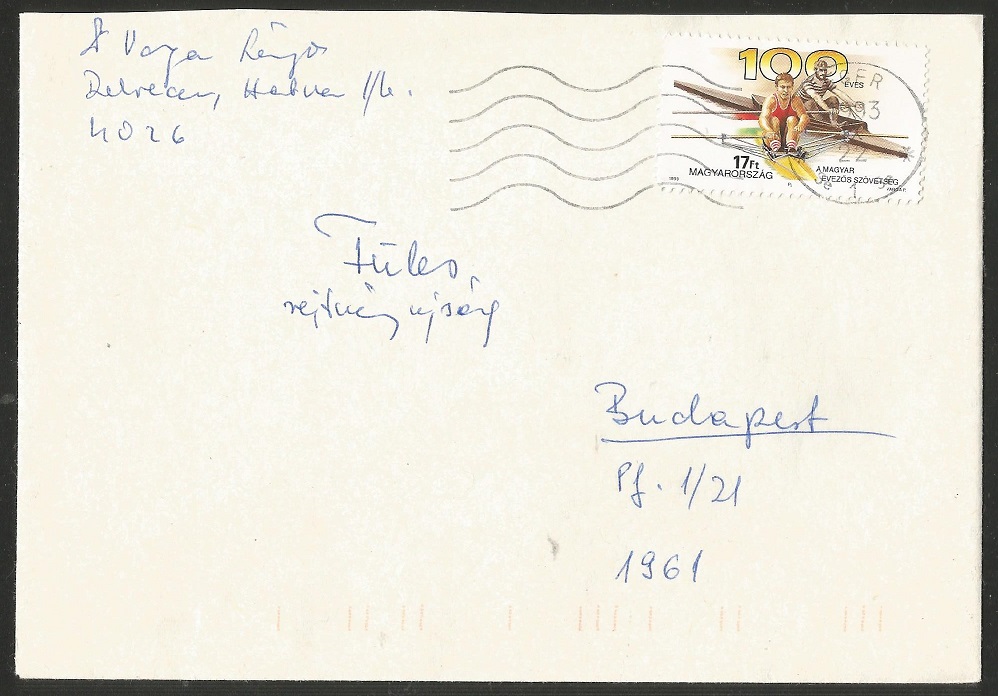 Varga
Debrecen, Hatvan
4026
100
ÉVES
17Ft
MAGYARORSZÁG
A MAGYAR
EVEZŐS SZÖVETSÉG
1993
GER
22
1
Füles,
rejtvény újság
Budapest
Pf. 1/21
1961